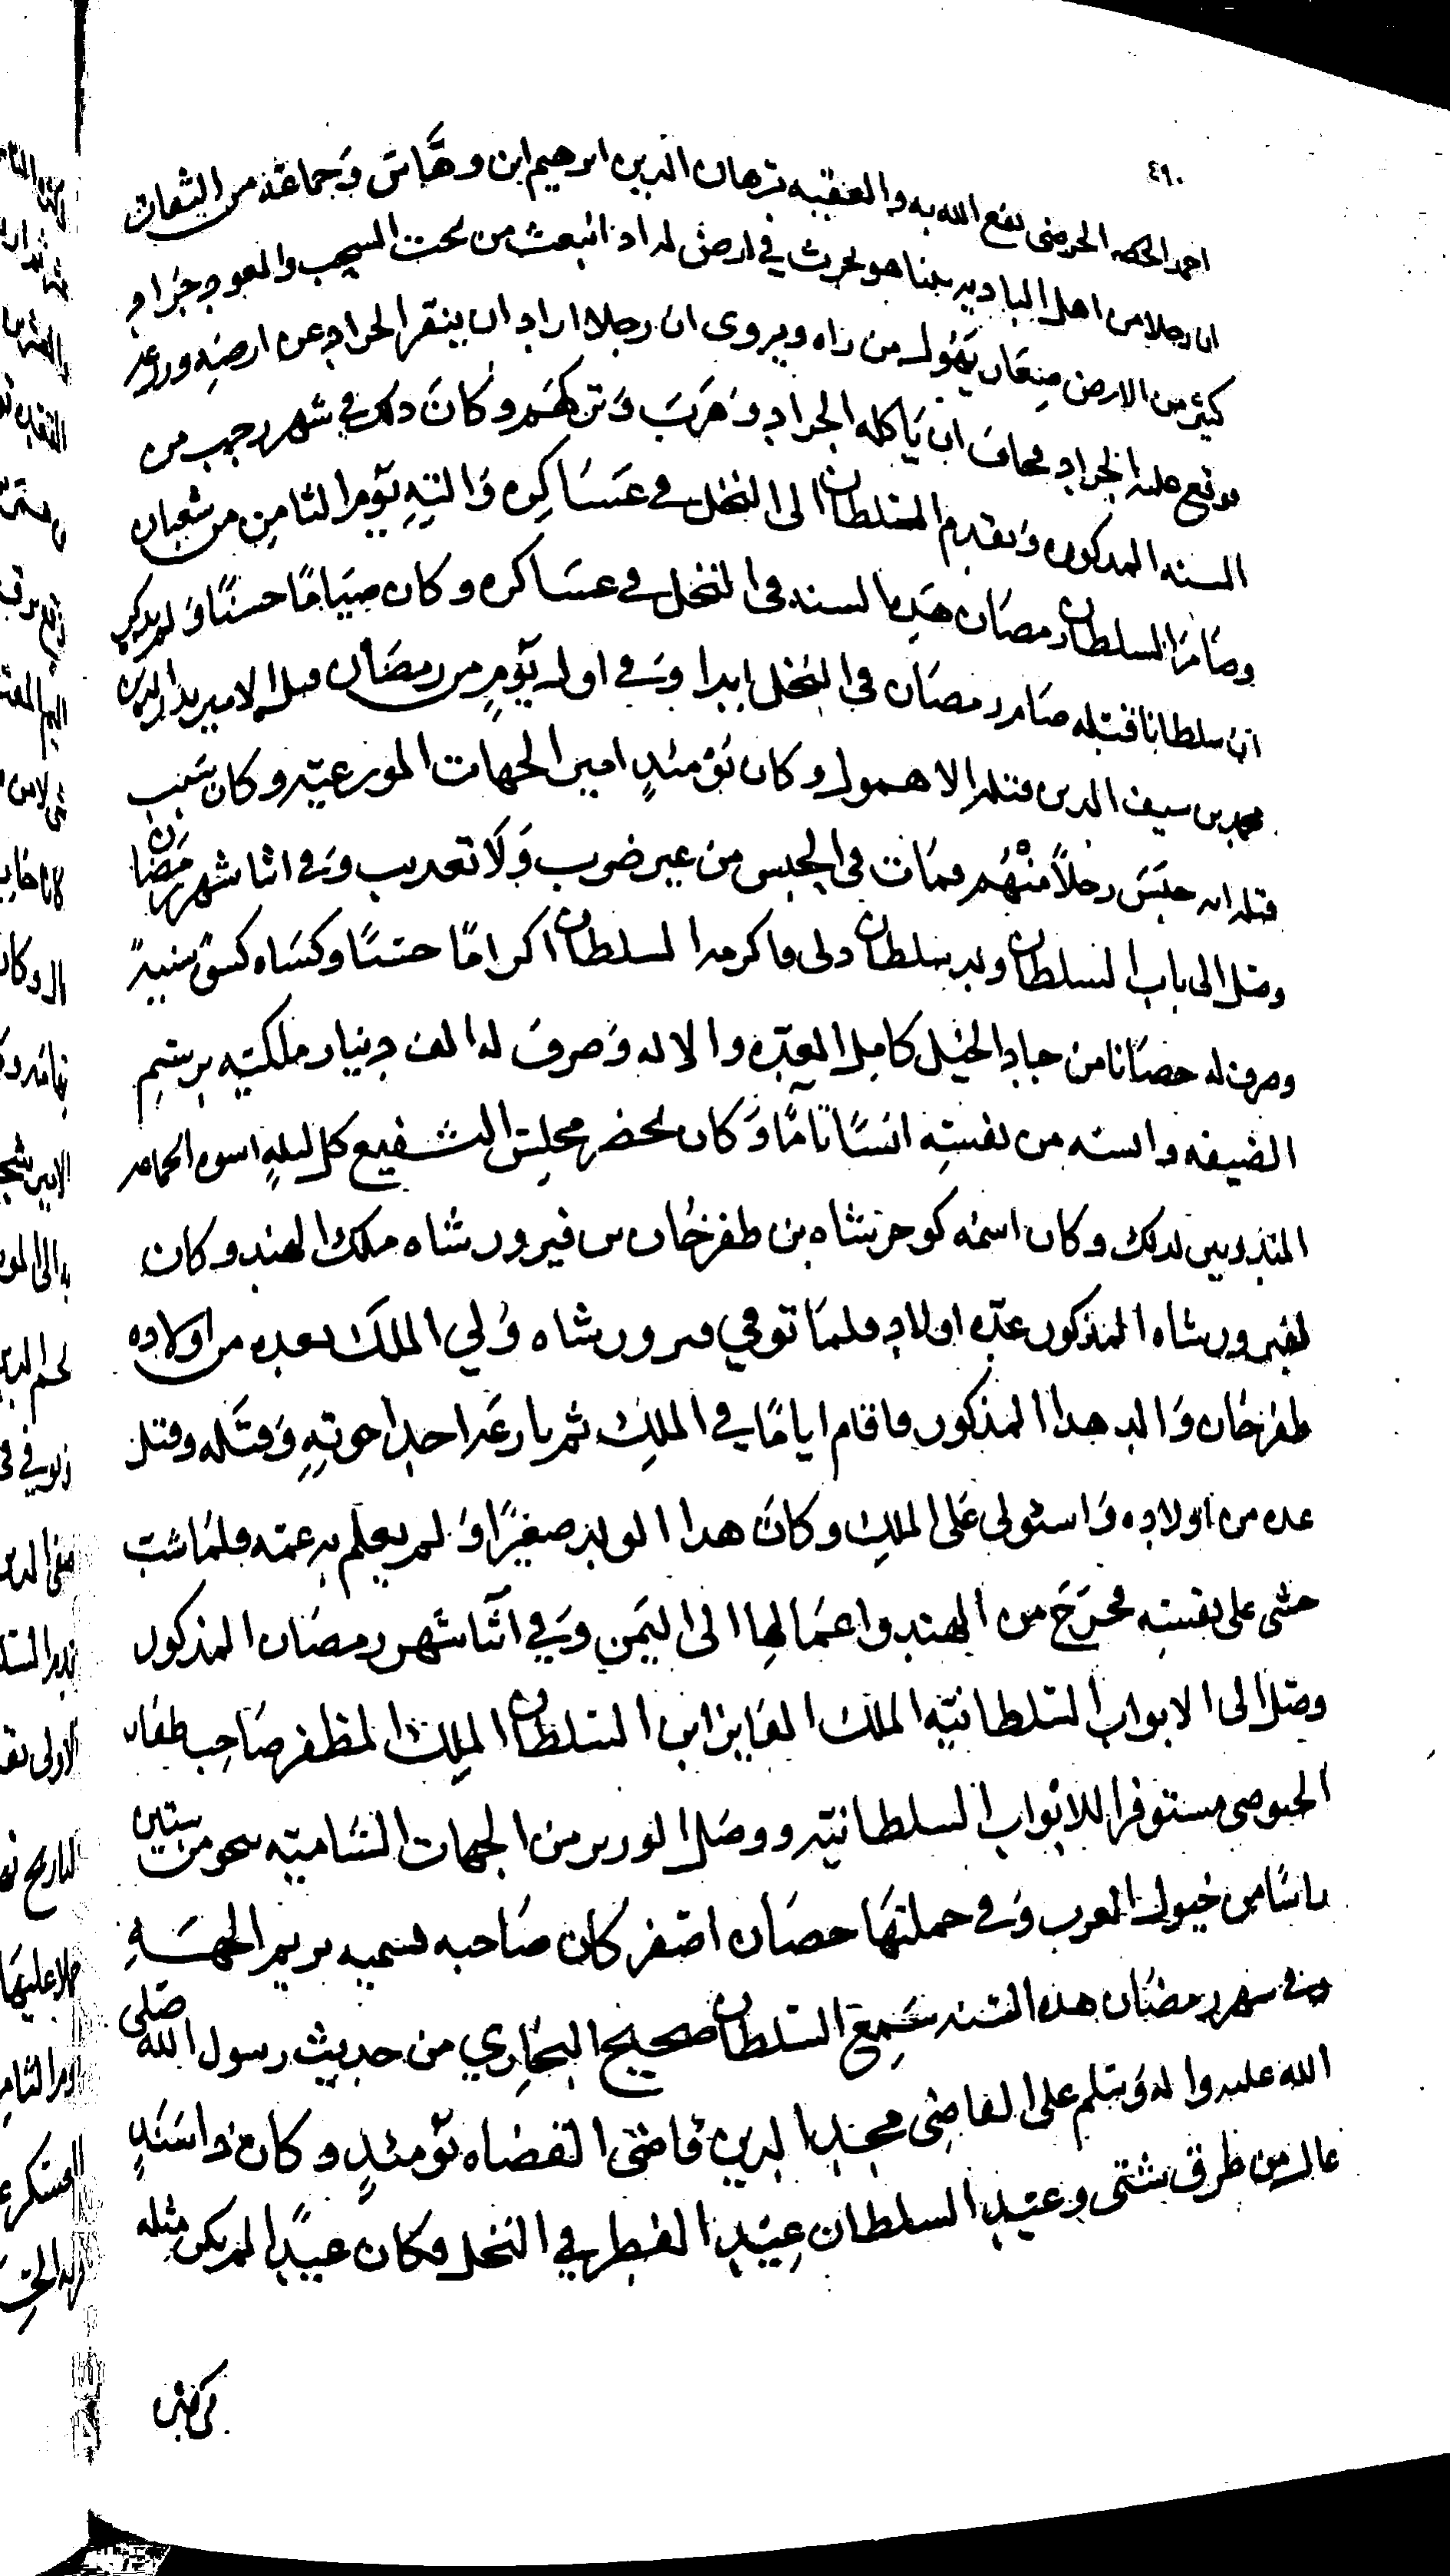 ٤٦٠
احمد الحكمه الحرضى نفع الله به والفقيه برهان الدين ابرهيم ابن وهاس وجماعة من الثقات
ان رجلا من اهل البادية بينما هو يحرث في ارض له اذ انبعث من تحت السحب والعود جراد
كثير من الارض صغار يهول من راه ويروى ان رجلا اراد ان ينفر الجراد عن ارضه وزرعه
فوقع عليه الجراد فخاف ان ياكله الجراد وهرب وتركهم وكان ذلك في شهر رجب من
السنه المذكوره وتقدم السلطان الى النخل في عساكره واليته يوم الثامن من شعبان
وصام السلطان رمضان هذه السنه في النخل في عساكره وكان صياما حسنا ولم يذكر
ان سلطانا قبله صام رمضان في النخل ابدا وفي اول يوم من رمضان قتل الامير بدر الدين
محمد بن سيف الدين قتله الاهمول وكان يومئذ امير الجهات الموزعيه وكان سبب
قتله انه حبس رجلا منهم فمات في الحبس من غير ضرب ولا تعذيب وفي اثنا شهر رمضان
وصل الى باب السلطان ولد سلطان دلى فاكرمه السلطان اكراما حسنا وكساه كسوة سنية
وصرف له حصانا من جياد الخيل كامل العده والاله وصرف له الف دينار ملكيه برسم
الضيفه وانسه من نفسه انسا تاما وكان يحضر مجلس الشفيع كل ليله اسوه الجماعه
المنتدبين لذلك وكان اسمه كوجر شاه بن ظفرخان بن فيروز شاه ملك الهند وكان
لفيروز شاه المذكور عدة اولاد فلما توفي فيروز شاه ولي الملك بعده من اولاده
ظفرخان والد هذا المذكور فاقام اياما في الملك ثم نازعه احد اخوته وقتله وقتل
عده من اولاده واستولى على الملك وكان هذا الولد صغيرا ولم يعلم به عمه فلما شب
خشى على نفسه فخرج من الهند واعمالها الى اليمن وفي اثنا شهر رمضان المذكور
وصل الى الابواب السلطانيه الملك الفايز ابن السلطان الملك المظفر صاحب ظفار
الحبوضي مستوفرا للابواب السلطانيه ووصل الوزير من الجهات الشاميه بنحو من ستين
راسا من خيول العرب وفي جملتها حصان اصفر كان صاحبه يسميه بريم الجهه
وفي شهر رمضان هذه السنه سمع السلطان صحيح البخاري من حديث رسول الله صلى
الله عليه واله وسلم على القاضي مجد الدين قاضى القضاه يومئذ وكان ذا سند
عال من طرق شتى وعيد السلطان عيد الفطر في النخل فكان عيدا لم يكن مثله